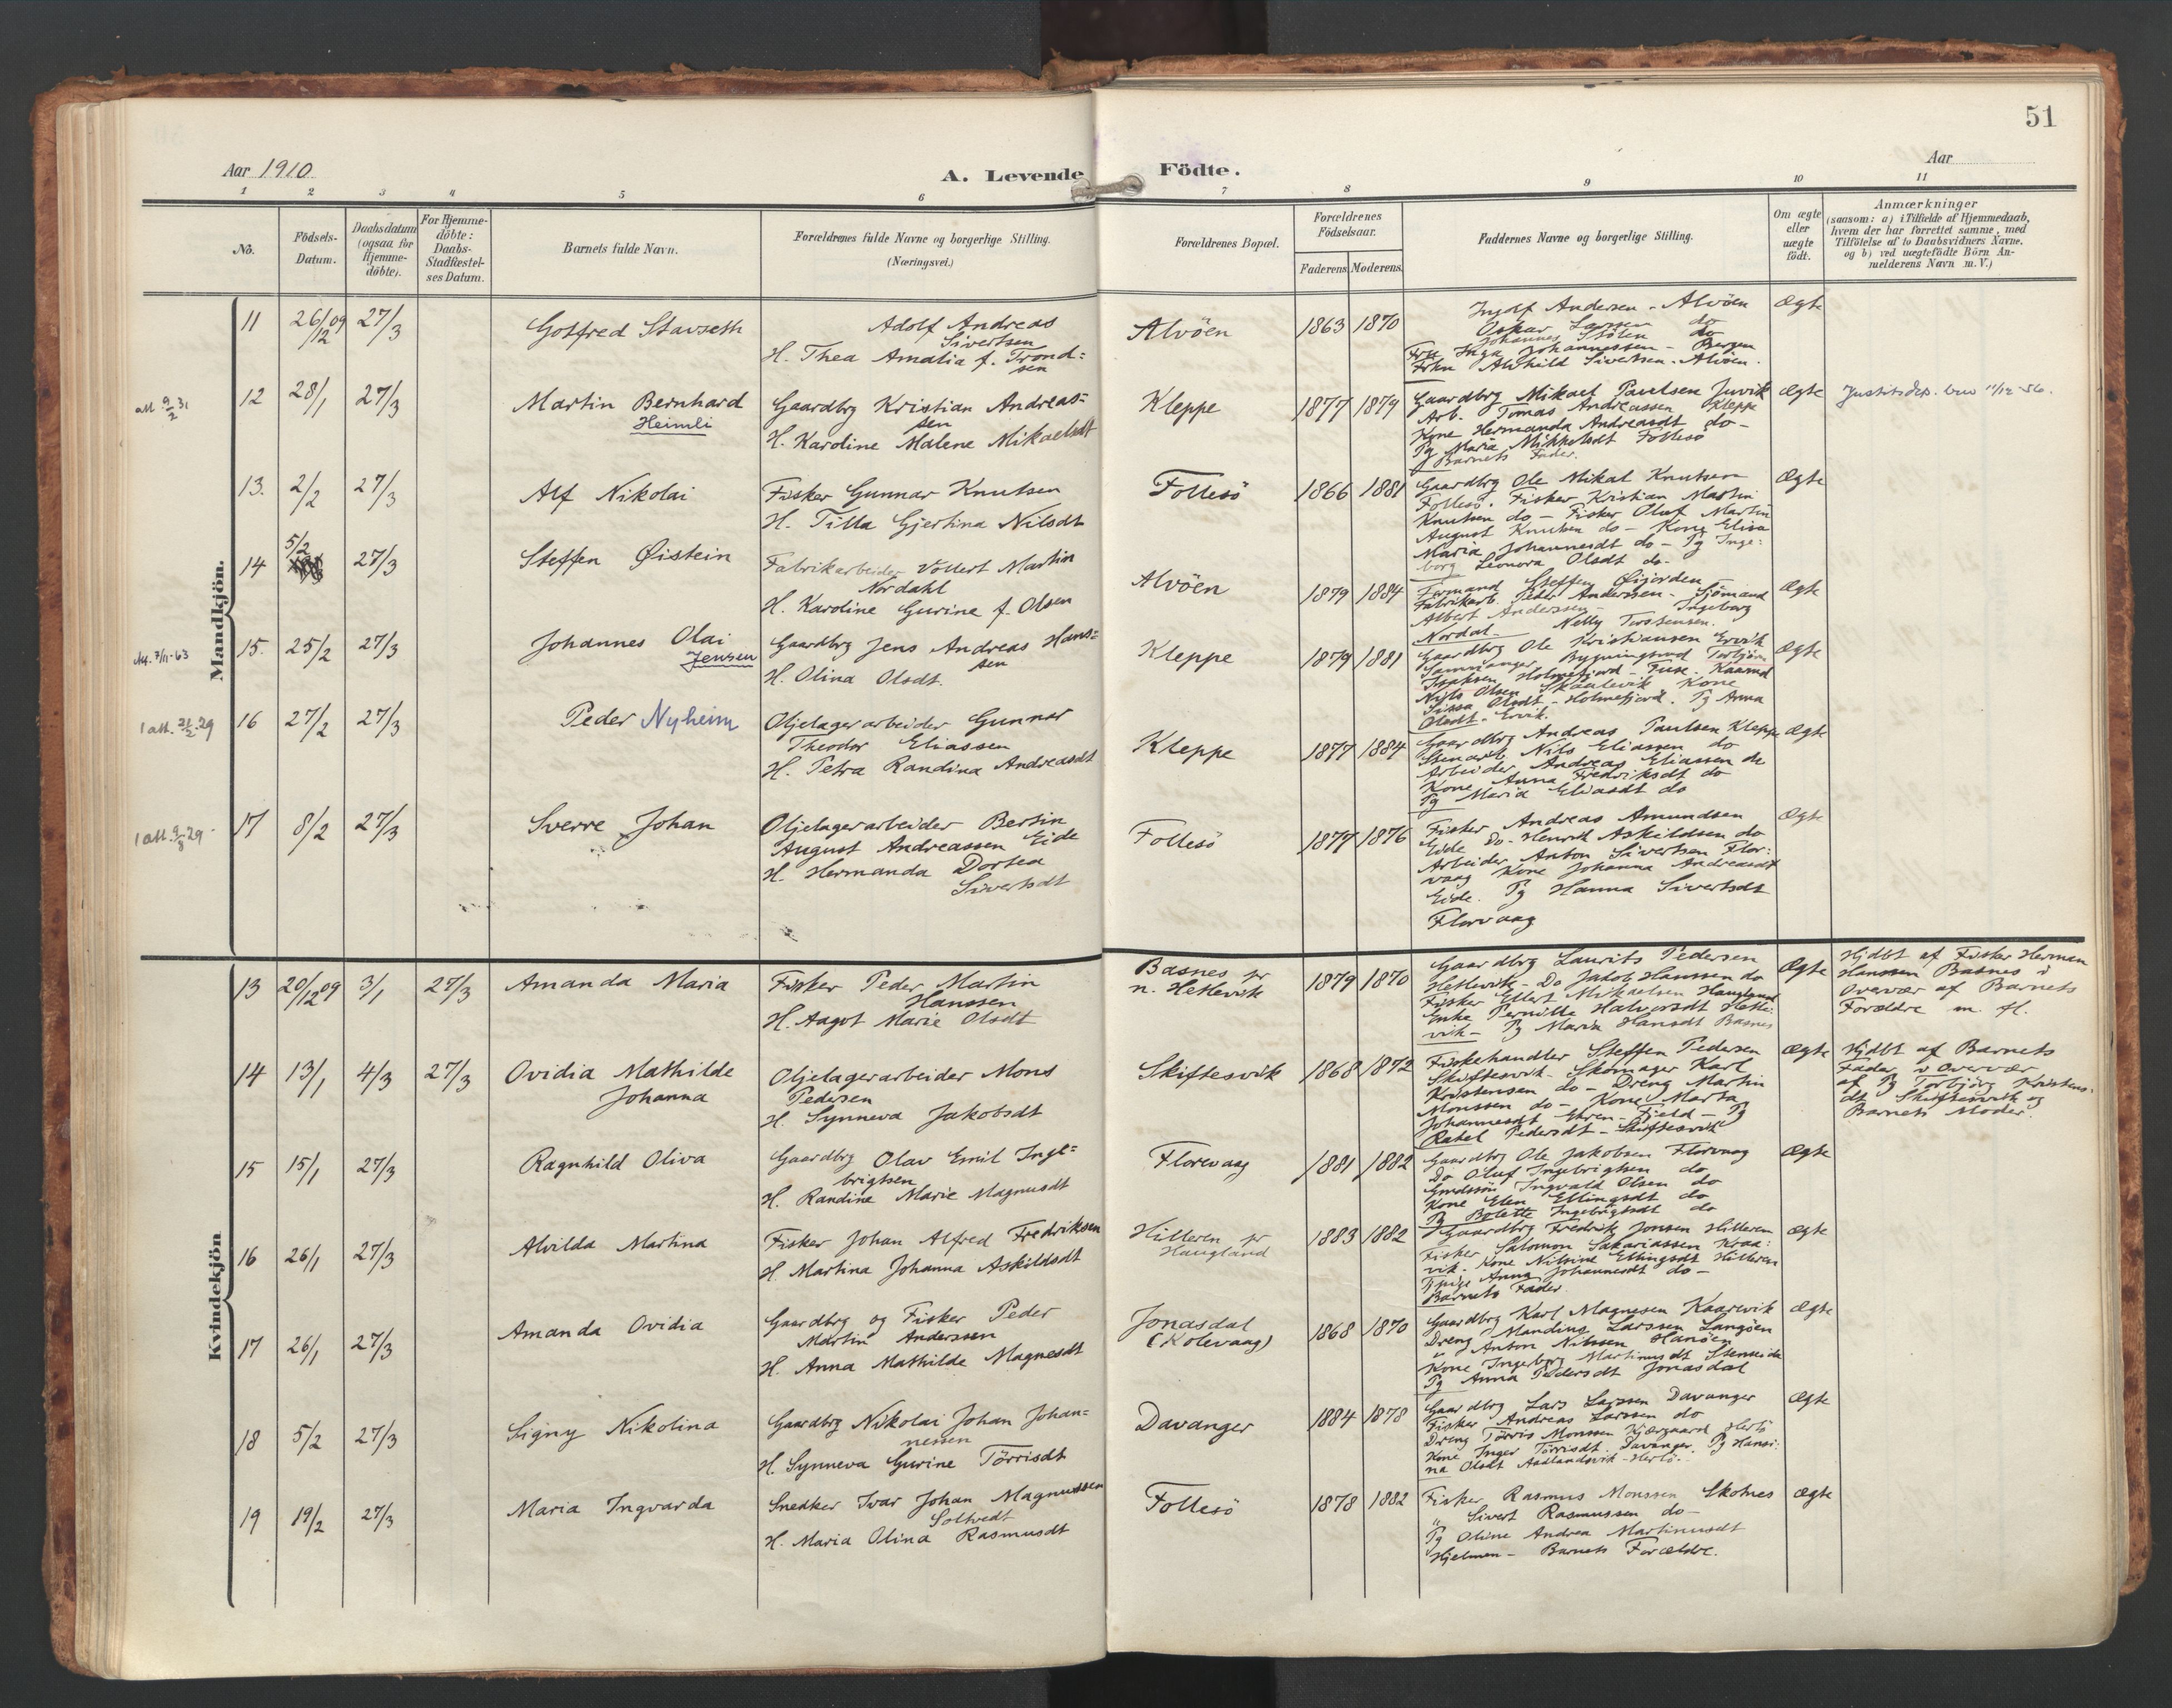 51
Aar 1910
A. Levende Födte.
Aar
1 2 3 4 5 6 7 8 9 10 11
No.
Födsels-Datum.
Daabsdatum (ogsaa for Hjemme-döbte).
For Hjemme-döbte: Daabs-Stadfæstel-ses Datum.
Barnets fulde Navn.
Forældrenes fulde Navne og borgerlige Stilling. (Næringsvei.)
Forældrenes Bopæl.
Forældrenes Födselsaar.
Faderens. Moderens.
Faddernes Navne og borgerlige Stilling.
Om ægte eller uægte födt.
Anmærkninger (saasom: a) i Tilfælde af Hjemmedaab, hvem der har forrettet samme, med Tilföielse af to Daabsvidners Navne. og b) ved uægtefödte Börn An-melderens Navn m. V.)
Mandkjön.
11 26/12 09 27/3 Gotfred Stavseth
Adolf Andreas
Sivertsen
H. Thea Amalia f. Trond=
sen
Alvöen 1863 1870
Ingolf Andersen - Alvöen
Oskar Larssen do
Johannes Stölen do
Frk Inga Johannessen - Bergen
Frkn Alvhild Sivertsen - Alvöen.
Ægte
att 9/2 31
12 28/1 27/3 Martin Bernhard
Heimli
Gaardbrg Kristian Andreas=
sen
H. Karoline Malene Mikaelsdt
Kleppe 1877 1879
Gaardbrg Mikael Paulsen Juvik
Arb. Tomas Andreassen Kleppe
Kone Hermanda Andreasdt do-
Pg Maria Mikkelsdt Follesö
Barnets Fader.
Ægte
Justitsdep. bev 11/12-56.
13. 2/2 27/3 Alf Nikolai
Fisker Gunnar Knutsen
H. Tilla Gjertina Nilsdt
Follesö 1866 1881
Gaardbrg Ole Mikal Knutsen
Follesö. Fisker Kristian Martin
Knutsen do - Fisker Oluf Martin
August Knutsen do - Kone Elisa
Maria Johannesdt do - Pg Inge:
borg Leonora Olsdt do.
Ægte
14 5/2 27/3 Steffen Øistein
Fabrikarbeider Vollert Martin
Nordahl
H. Karoline Gurine f. Olsen
Alvöen 1879 1884
Formand Steffen Øijorden
Fabrikarb. Peder Anderssen - Sjömand
Albert Anderssen - Ingeborg
Nordal - Nelly Torstensen.
Ægte
15. 25/2 27/3 Johannes Olai
Jensen
Gaardbrg Jens Andreas Hans=
sen
H. Olina Olsdt.
Kleppe 1879 1881
Gaardbrg Ole Kristiansen Ervik
Samnanger Bygningsmd Torbjön
Isaksen Holmefjord - Fuse. Kaarmd
Nils Olsen Skaalevik Kone
Sissa Olsdt - Holmefjord. Pg Anna
Olsdt - Ervik.
Ægte
1 att. 21/2 29
16 27/2 27/3 Peder Nyheim
Oljelagerarbeider Gunnar
Theodor Eliassen
H. Petra Randina Andreasdt
Kleppe 1877 1884
Gaardbrg Andreas Paulsen Kleppe
Stenarb. Nils Eliassen do
Arbeider Andreas Eliassen do
Kone Anna Fredriksdt do
Pg Maria Eliasdt do
Ægte
1 att. 9/8 29
17 8/2 27/3 Sverre Johan
Oljelagerarbeider Bertin
August Andreassen Eide
H. Hermanda Dortea
Sivertsdt
Follesö 1877 1876
Fisker Andreas Amundsen
Eide Do - Henrik Askildsen do
Arbeider Anton Sivertsen Flor:
vaag Kone Johanna Andreasdt
Eide. Pg Hanna Sivertsdt
Florvaag
Ægte
Kvindekjön
13 20/12 09 3/1 27/3 Amanda Maria
Fisker Peder Martin
Hanssen
H. Aagot Marie Olsdt
Basnes pr
n. Hetlevik
1879 1870
Gaardbrg Laurits Pedersen
Hetlevik - Do Jakob Hanssen do
Fisker Ellert Mikaelsen Haugland
Enke Pernille Halvorsdt Hetle:
vik - Pg Maria Hansdt Basnes
Ægte
Hjdbt af Fisker Herman
Hanssen Basnes i
Overvær af Barnets
Forældre m. fl.
14 13/1 4/3 27/3 Ovidia Mathilde
Johanna
Oljelagerarbeider Mons
Pedersen
H. Synneva Jakobsdt
Skiftesvik 1868 1872
Fiskehandler Steffen Pedersen
Skiftesvik - Skomager Karl
Kristensen do - Dreng Martin
Monssen do - Kone Marta
Johannesdt Ekren - Fjeld - Pg
Rakel Pedersdt - Skiftesvik
Ægte
Hjdbt af Barnets
Fader i Overvær
af Pg Torbjörg Kristens:
dt Skiftesvik og
Barnets Moder.
15 15/1 27/3 Ragnhild Oliva
Gaardbrg Olav Emil Inge=
brigtsen
H. Randine Marie Magnusdt
Florvaag 1881 1882
Gaardbrg Ole Jakobsen Florvaag
Do Oluf Ingebrigtsen do
Grdssön Ingvald Olsen do
Kone Elen Ellingsdt do
Pg Bolette Ingebrigtsdt do
Ægte
16 26/1 27/3 Alvilda Martina
Fisker Johan Alfred Fredriksen
H. Martina Johanna Askildsdt
Hilleren pr
Haugland
1883 1882
Gaardbrg Fredrik Jonsen Hilleren
Fisker Salomon Sakariassen Kraa:
vik. Kone Nilsine Ellingsdt Hilleren
Pige Anna Johannesdt do -
Barnets Fader.
Ægte
17 26/1 27/3 Amanda Ovidia
Gaardbrg og Fisker Peder
Martin Anderssen
H. Anna Mathilde Magnesdt
Jonasdal
(Kolevaag)
1868 1870
Gaardbrg Karl Magnesen Kaarevik
Dreng Mandius Larssen Langöen
" Anton Nilssen Hanöen
Kone Ingeborg Martinusdt Stenseide
Pg Anna Pedersdt Jonasdal
Ægte
18 5/2 27/3 Signy Nikolina
Gaardbrg Nikolai Johan Johan=
nessen
H. Synneva Gurine Törrisdt
Davanger 1884 1878
Gaardbrg Lars Larssen Davanger
Fisker Andreas Larssen do
Dreng Törris Monssen Kjærgaard Herlö
Kone Inger Törrisdt. Davanger. Pg Hansi:
na Olsdt Aadlandsvik - Herlö.
Ægte
19 19/2 27/3 Maria Ingvarda
Snedker Ivar Johan Magnussen
Soltvedt
H. Maria Olina Rasmusdt
Follesö 1878 1882
Fisker Rasmus Monssen Skolnes
" Sivert Rasmussen do -
Pg Oline Andrea Martinusdt
Hjelmen - Barnets Forældre.
Ægte